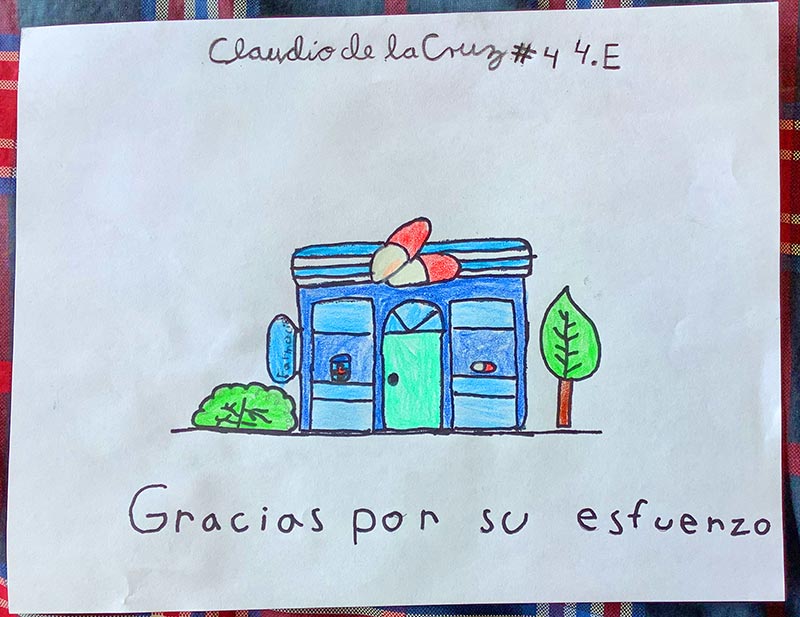 Claudio de la Cruz #4 4.E
Farmacia
Gracias por su esfuerzo